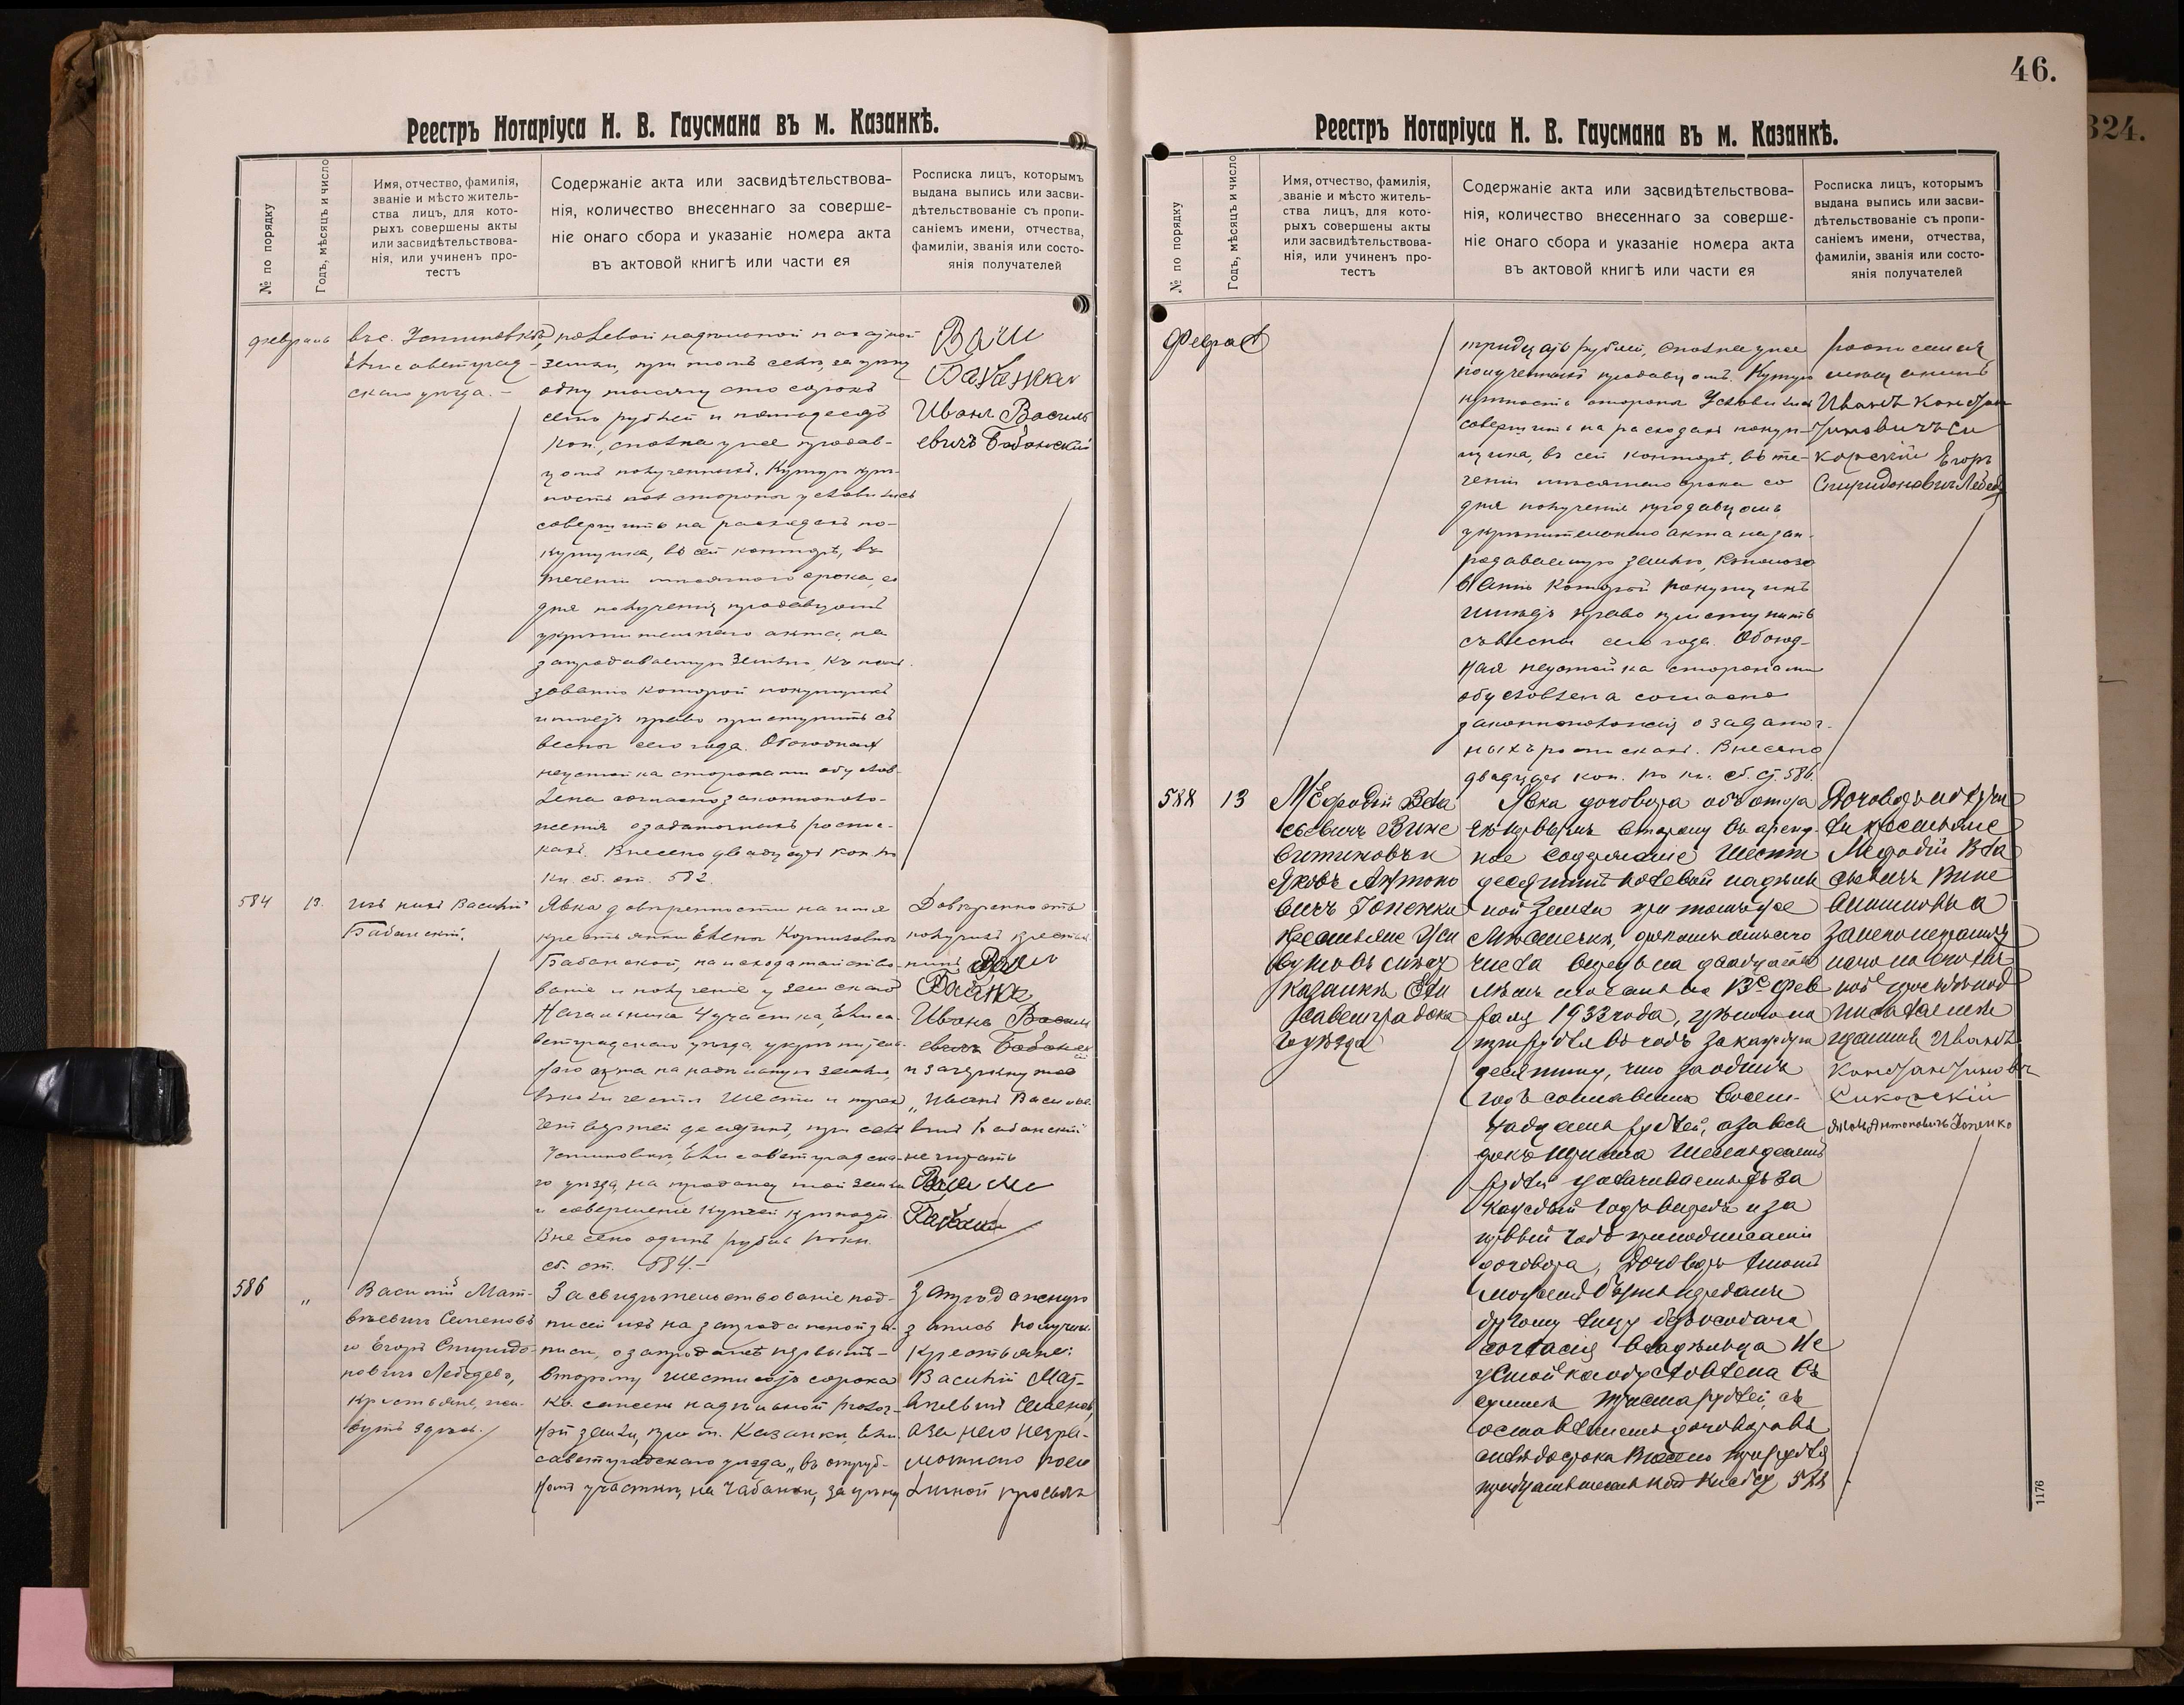 Реестръ Нотаріуса Н. В. Гаусмана въ м. Казанкѣ.
№ по порядку
Годъ, мѣсяцъ и число
Имя, отчество, фамилія,
званіе и мѣсто житель-
ства лицъ, для кото-
рыхъ совершены акты
или засвидѣтельствова-
нія, или учиненъ про-
тестъ
Содержаніе акта или засвидѣтельствова-
нія, количество внесеннаго за соверше-
ніе онаго сбора и указаніе номера акта
въ актовой книгѣ или части ея
Росписка лицъ, которымъ
выдана выпись или засви-
дѣтельствованіе съ пропи-
саніемъ имени, отчества,
фамиліи, званія или состо-
янія получателей
февраль
въ с. Устиновкѣ
Елисаветград-
скаго уѣзда.-
полевой надѣльной пахатной
земли, при томъ селѣ, за цѣну
одну тысячу сто сорокъ
семь рублей и пятьдесятъ
коп., сполна уже продав-
цомъ полученныхъ. Купчую крѣ-
пость стороны условились
совершить на расходахъ по-
купщика, въ сей конторѣ, въ
теченіи мѣсячнаго срока, со
дня полученія продавцомъ
укрѣпительнаго акта, на
запродаваемую землю, къ поль-
зованію которой покупщикъ
имѣетъ право приступить съ
весны сего года. Обоюдная
неустойка сторонами обуслов-
лена согласно законополо-
женія о задаточныхъ роспис-
кахъ. Внесено двадцать коп. по
кн. сб. ст. 582.
Иванъ Василь
евичъ Бабанскій
584
13.
Василій
Бабанскій.
Явка довѣренности на имя
крестьянки Елены Корниловны
Бабанской, на исходатайство-
ваніе и полученіе у Земскаго
Начальника 4 участка, Елиса-
ветградскаго уѣзда, укрѣпитель-
наго акта на надѣльную землю,
въ количествѣ шести и трехъ
четвертей десятинъ, при селѣ
Устиновкѣ, Елисаветградска-
го уѣзда, на продажу той земли
и совершеніе купчей крѣпости.
Внесено одинъ рубль по кн.
сб. ст. 584.-
Довѣренность
получилъ крестья-
нинъ
Иванъ Василь
евичъ Бабанск
ій
и зачеркнутое
„Иванъ Василье-
вичъ Бабанскій
не читать
586
„
Василій Мат-
вѣевичъ Семеновъ
и Егоръ Спиридо-
новичъ Лебедевъ,
крестьяне, жи-
вутъ здѣсь.
Засвидѣтельствованіе под-
писей ихъ на запродажной за-
писи, о запродажѣ первымъ-
второму шестисотъ сорока
кв. саженъ надѣльной
земли, при м. Казанкѣ, Ели-
саветградскаго уѣзда, въ отруб-
номъ участкѣ, на Чабанкѣ, за цѣну
Запродажную
запись получили
крестьяне:
Василій Мат-
вѣевичъ Семеновъ,
а за него негра-
мотнаго по его
личной просьбѣ
46.
Реестръ Нотаріуса Н. В. Гаусмана въ м. Казанкѣ.
№ по порядку
Годъ, мѣсяцъ и число
Имя, отчество, фамилія,
званіе и мѣсто житель-
ства лицъ, для кото-
рыхъ совершены акты
или засвидѣтельствова-
нія, или учиненъ про-
тестъ
Содержаніе акта или засвидѣтельствова-
нія, количество внесеннаго за соверше-
ніе онаго сбора и указаніе номера акта
въ актовой книгѣ или части ея
Росписка лицъ, которымъ
выдана выпись или засви-
дѣтельствованіе съ пропи-
саніемъ имени, отчества,
фамиліи, званія или состо-
янія получателей
тридцать рублей, сполна уже
полученныхъ продавцомъ. Купчую
крѣпость стороны условились
совершить на расходахъ покуп-
щика, въ сей конторѣ, въ те-
ченіи мѣсячнаго срока со
дня полученія продавцомъ
укрѣпительнаго акта на зап-
родаваемую землю, к пользо
ванію которой покупщикъ
имѣетъ право приступить
съ весны сего года. Обоюд-
ная неустойка сторонами
обусловлена согласно
законоположенія о задаточ-
ныхъ роспискахъ. Внесено
двадцать коп. по кн. сб. ст. 586.
Иванъ Констан
тиновичъ Си
корскій Егоръ
Спиридоновичъ Лебедевъ
588
13
Меѳодій Вла
сьевичъ Вине
Яковъ Антоно
вичъ Гопенко
крестьяне
Казанкѣ Ели
саветградска
го уѣзда
Явка договора объ отда
чѣ первымъ второму въ аренд-
ное содержаніе шести
десятинъ полевой надѣль
ной земли при томъ же
мѣстечкѣ,
числа впредь на двадцать
лѣтъ 13го фев
раля 1933 года, цѣною по
три рубля въ годъ за каждую
десятину, что за одинъ
годъ составитъ восем-
надцать рублей, а за весь
срокъ триста шестьдесятъ
рублей за
каждый годъ впередъ и за
первый годъ при подписаніи
договора. Договоръ
можетъ быть переданъ
другому лицу безъ особаго
согласія владѣльца Не
устойка обусловлена въ
суммѣ триста рублей, съ
Договоръ получи
ли крестьяне
Меѳодій Вла
сьевичъ Вине
Иванъ
Константиновичъ
Сикорскій
Яковъ Антоновичъ Гопенко
1176
324.